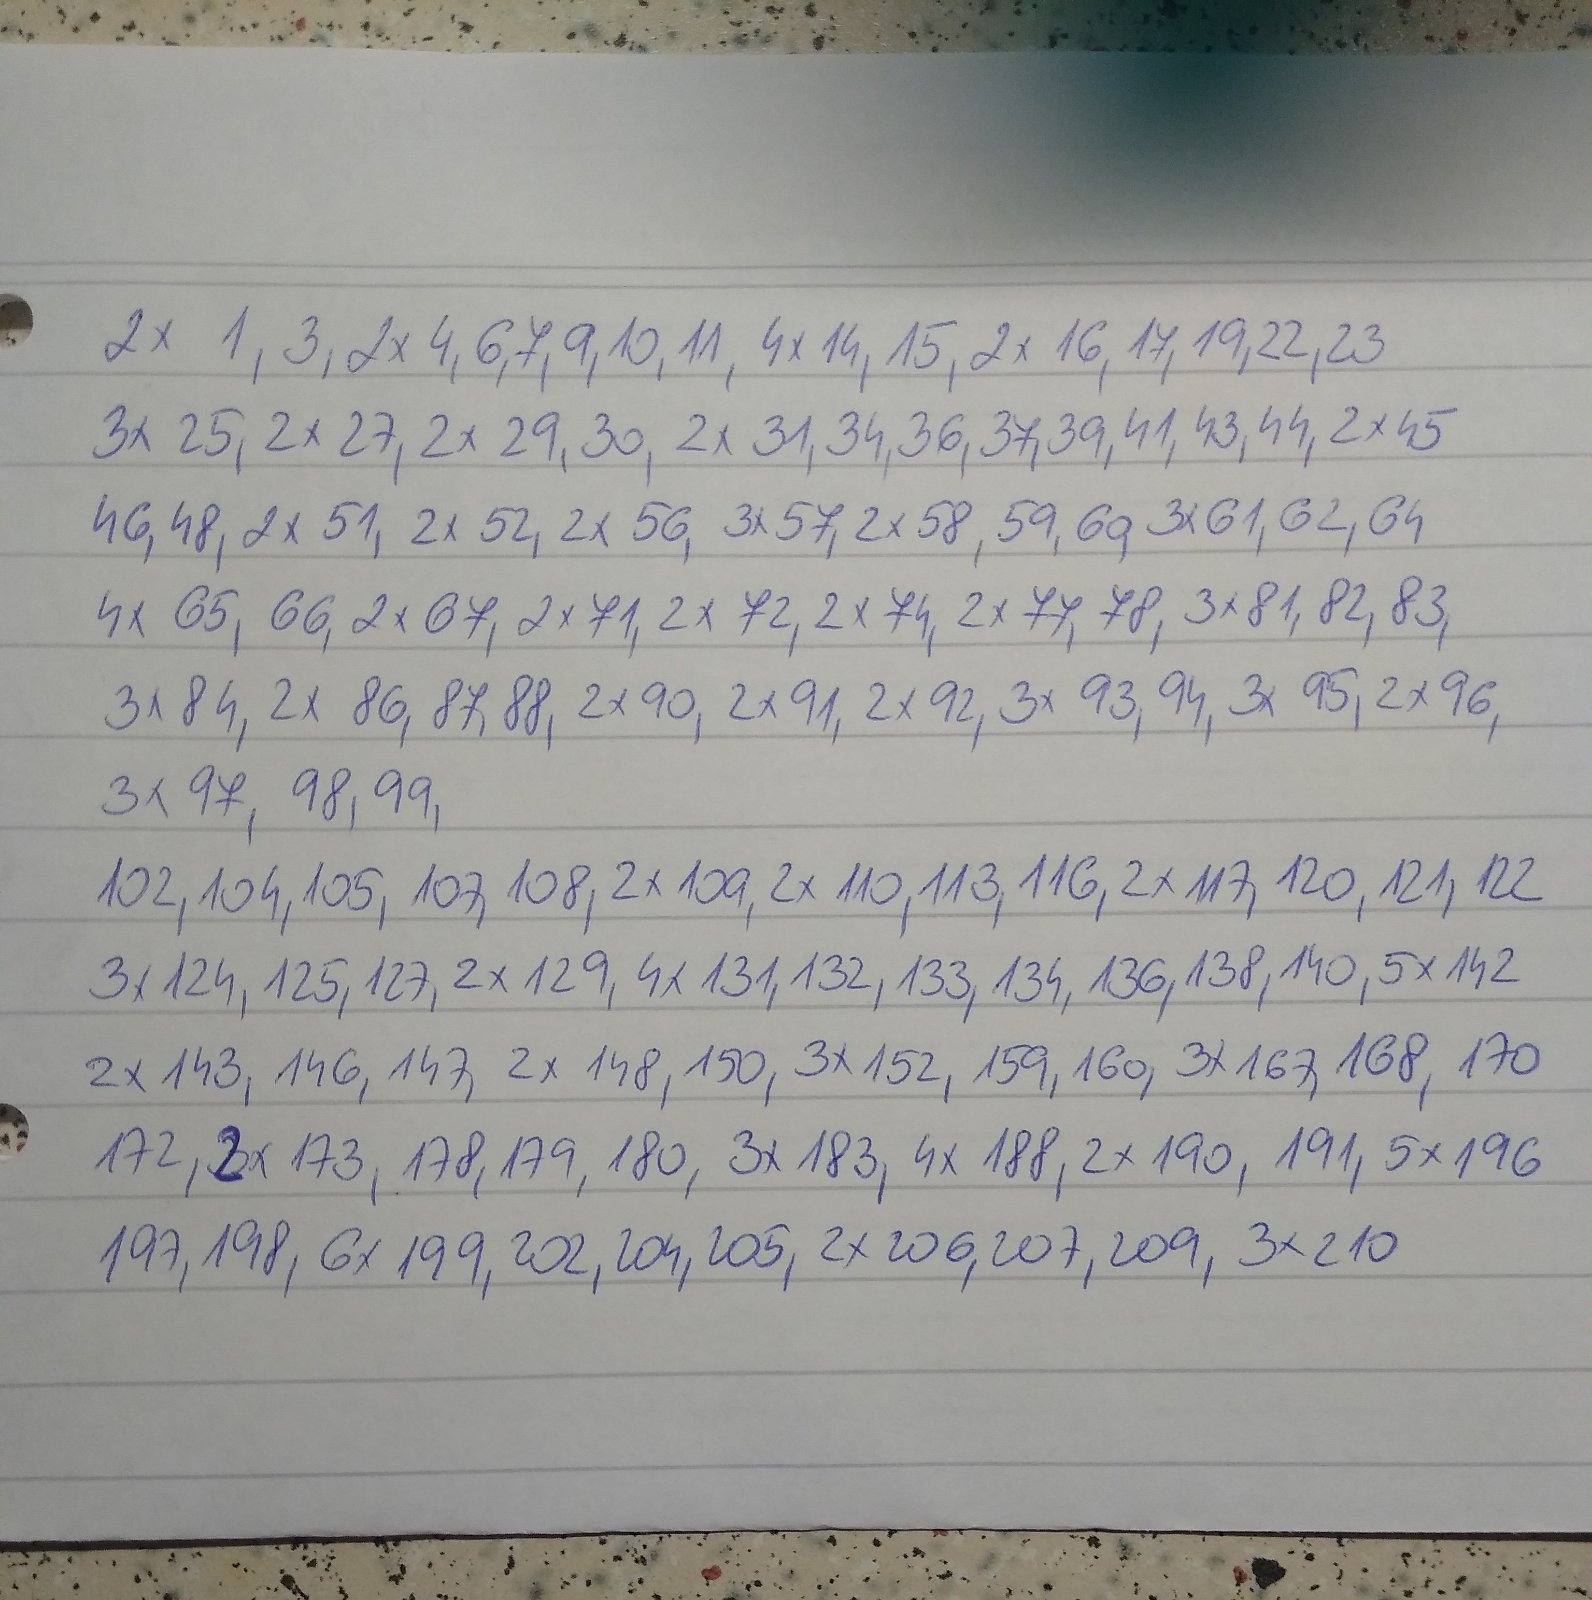 2x 1, 3, 2x 4, 6, 7, 9, 10, 11, 4x 14, 15, 2x 16, 17, 19, 22, 23
3x 25, 2x 27, 2x 29, 30, 2x 31, 34, 36, 37, 39, 41, 43, 44, 2x 45
46, 48, 2x 51, 2x 52, 2x 56, 3x 57, 2x 58, 59, 60, 3x 61, 62, 64
4x 65, 66, 2x 67, 2x 71, 2x 72, 2x 74, 2x 77, 78, 3x 81, 82, 83,
3x 84, 2x 86, 87, 88, 2x 90, 2x 91, 2x 92, 3x 93, 94, 3x 95, 2x 96,
3x 97, 98, 99,
102, 104, 105, 107, 108, 2x 109, 2x 110, 113, 116, 2x 117, 120, 121, 122
3x 124, 125, 127, 2x 129, 4x 131, 132, 133, 134, 136, 138, 140, 5x 142
2x 143, 146, 147, 2x 148, 150, 3x 152, 159, 160, 3x 167, 168, 170
172, 2x 173, 178, 179, 180, 3x 183, 4x 188, 2x 190, 191, 5x 196
197, 198, 6x 199, 202, 204, 205, 2x 206, 207, 209, 3x 210